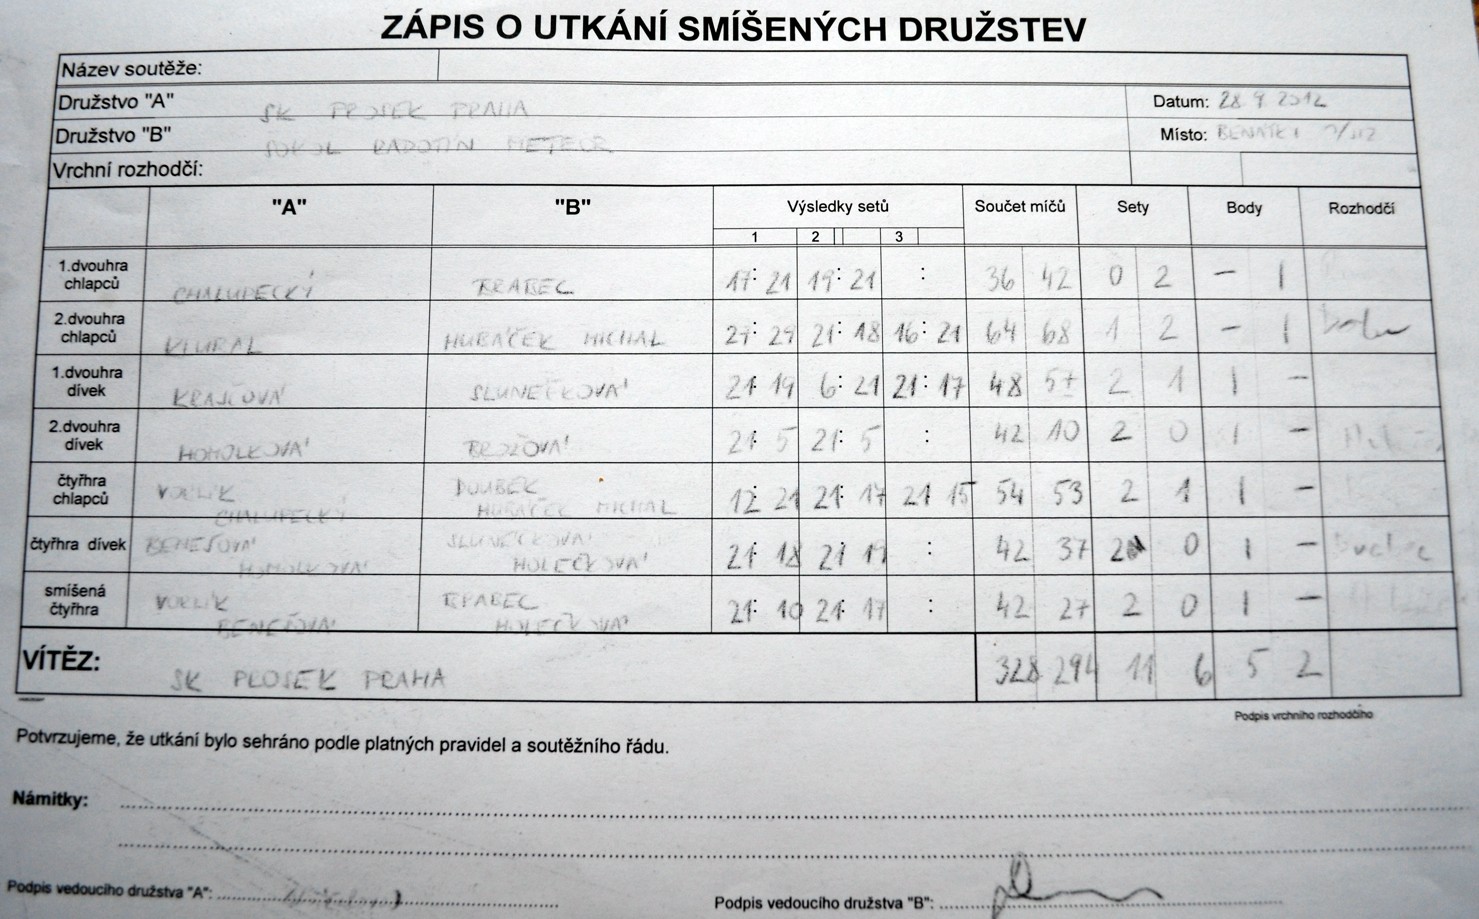 ZÁPIS O UTKÁNÍ SMÍŠENÝCH DRUŽSTEV
Název soutěže:
Družstvo "A" SK PROSEK PRAHA Datum: 28 9 2012
Družstvo "B" SOKOL RADOTÍN METEOR Místo: BENÁTKY
Vrchní rozhodčí:
"A" "B" Výsledky setů Součet míčů Sety Body Rozhodčí
1 2 3
1.dvouhra chlapců CHALUPECKÝ BRABEC 17: 21 19: 21 : 36 42 0 2 – 1
2.dvouhra chlapců HUBÁČEK MICHAL 27: 29 21: 18 16: 21 64 68 1 2 – 1
1.dvouhra dívek KRAJČOVÁ SLUNEČKOVÁ 21: 19 6: 21 21: 17 48 57 2 1 1 –
2.dvouhra dívek HOMOLKOVÁ BROŽOVÁ 21: 5 21: 5 : 42 10 2 0 1 –
čtyřhra chlapců VORLÍK DOUBEK 12: 21 21: 17 21 15 54 53 2 1 1 –
CHALUPECKÝ HUBÁČEK MICHAL
čtyřhra dívek BENEŠOVÁ SLUNEČKOVÁ 21: 18 21: 19 : 42 37 2 0 1 –
HOMOLKOVÁ HOLEČKOVÁ
smíšená čtyřhra VORLÍK BRABEC 21: 10 21: 17 : 42 27 2 0 1 –
BENEŠOVÁ HOLEČKOVÁ
VÍTĚZ: SK PROSEK PRAHA 328 294 11 6 5 2
Podpis vrchního rozhodčího
Potvrzujeme, že utkání bylo sehráno podle platných pravidel a soutěžního řádu.
Námitky:
Podpis vedoucího družstva "A": Podpis vedoucího družstva "B":